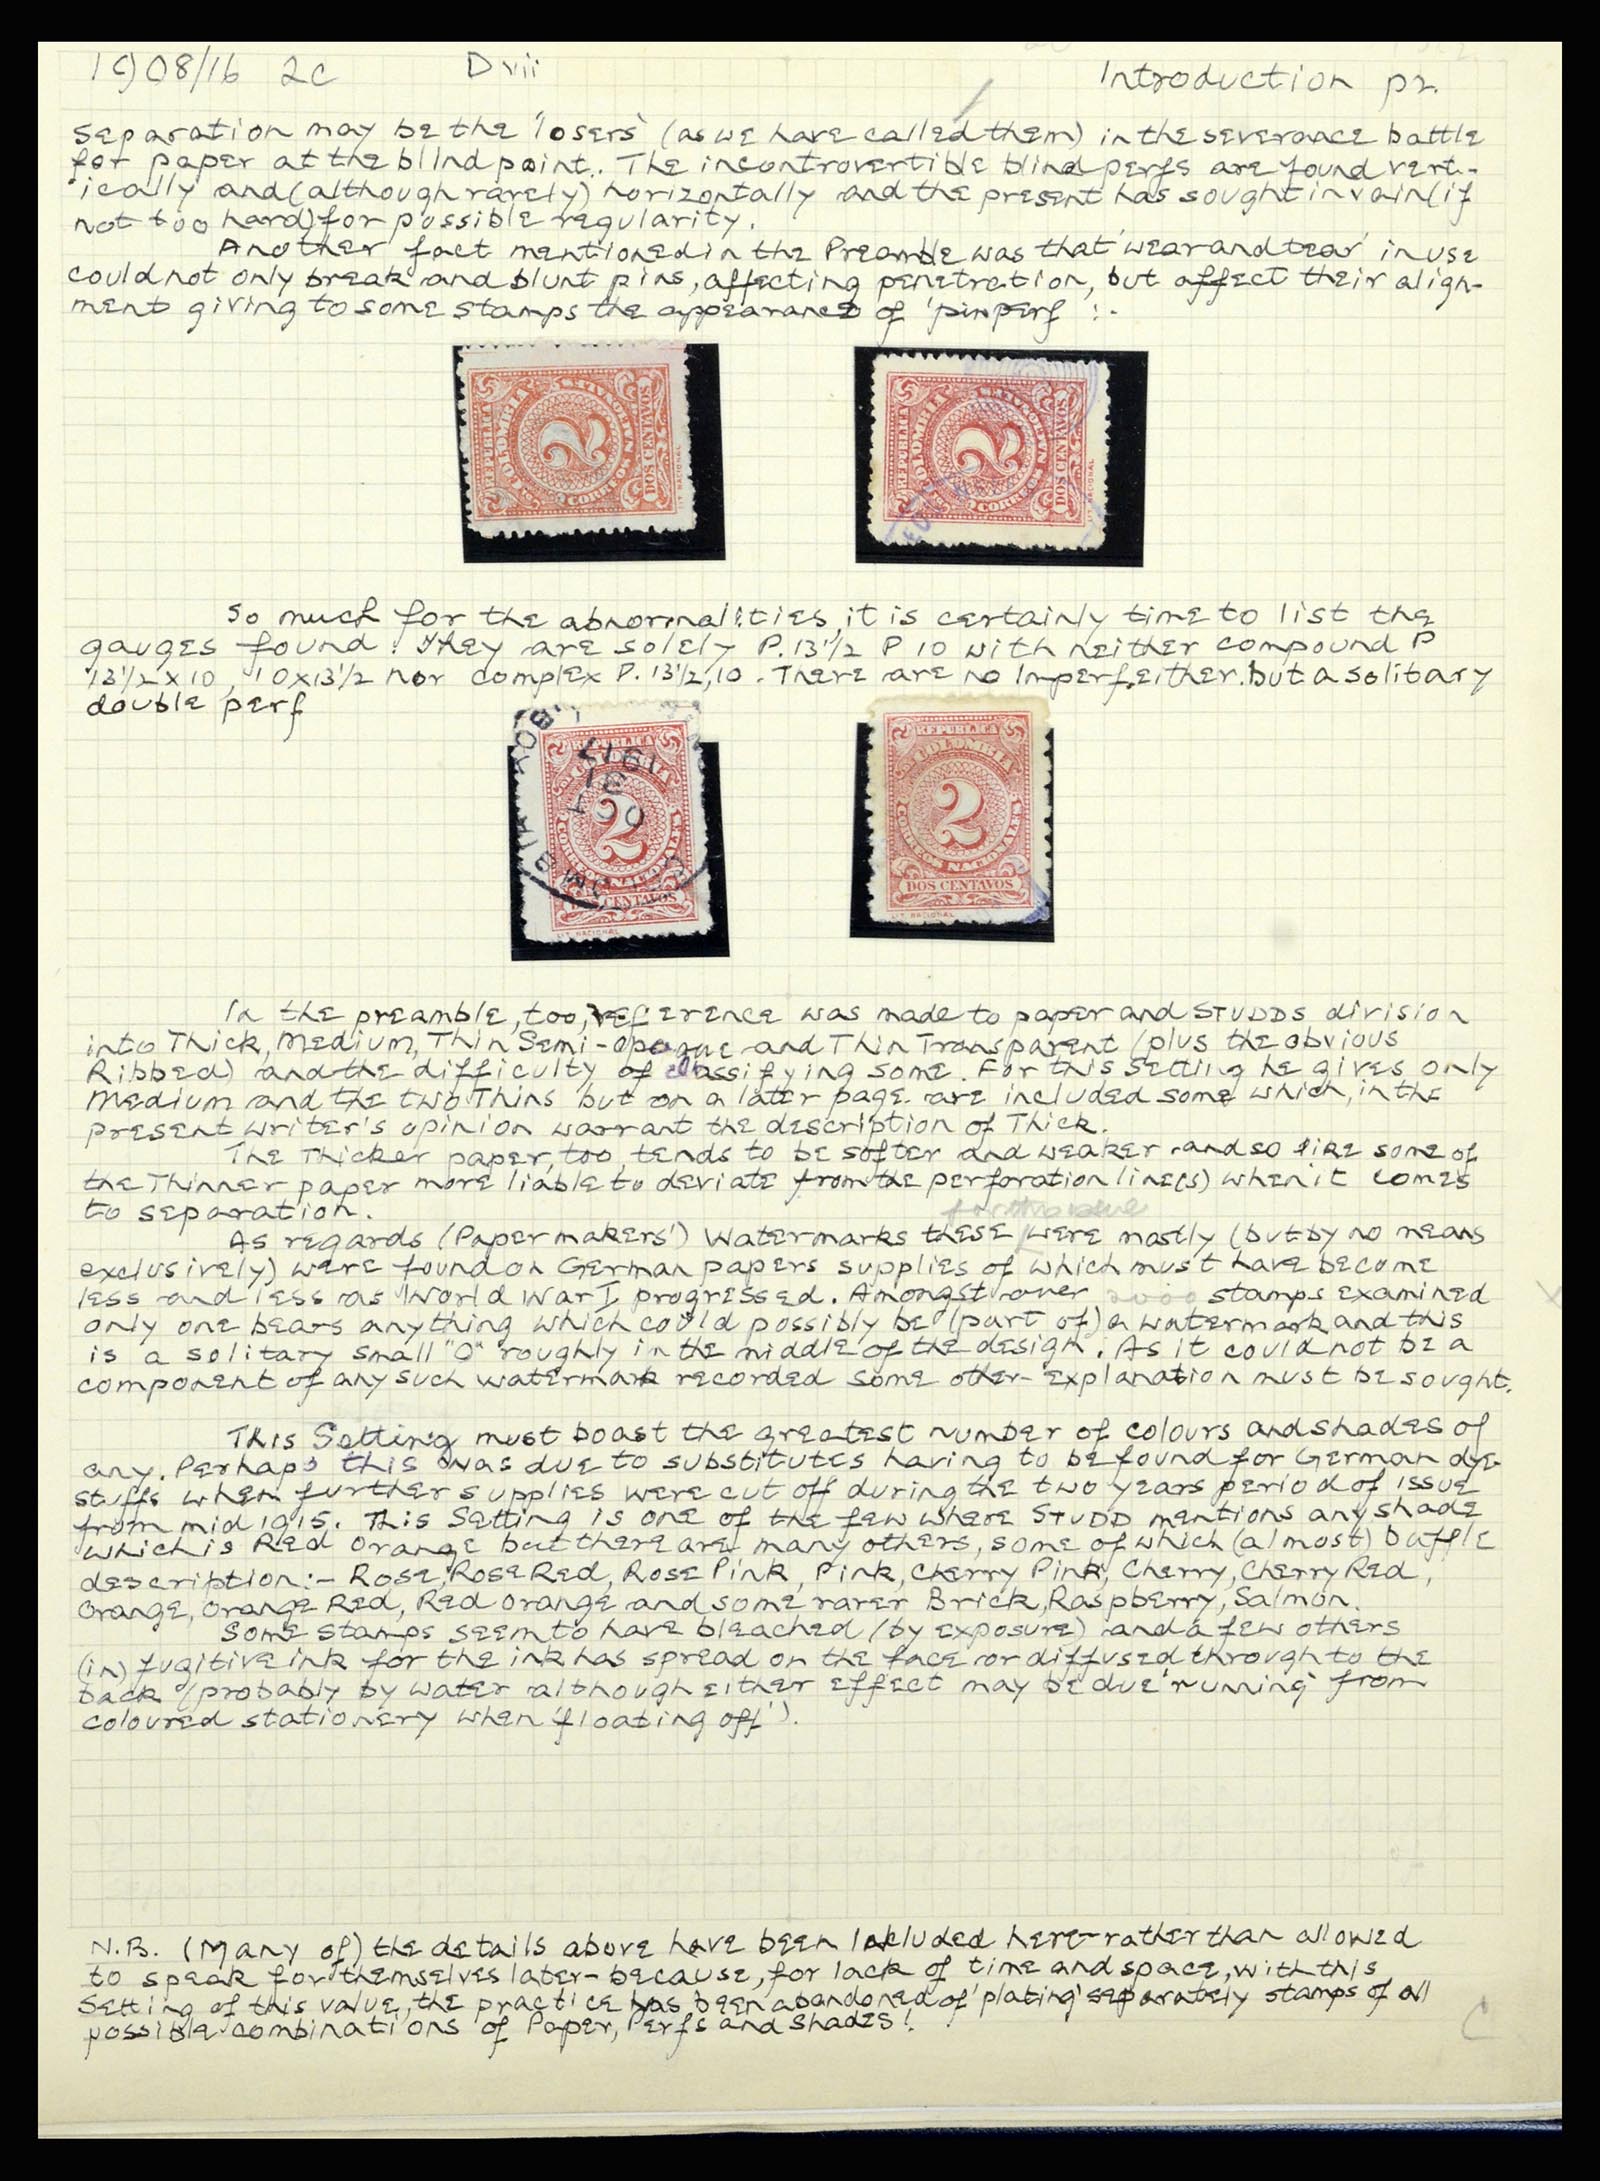 1908/16 2c D vii Introduction p2.
separation may be the 'losers' (as we have called them) in the severance battle
for paper at the blind point. The incontrovertible blind perfs are found vert-
ically and (although rarely) horizontally and the present has sought in vain (if
not too hard) for possible regularity.
Another fact mentioned in the Preamble was that 'wear and tear' in use
could not only break and blunt pins, affecting penetration, but affect their align-
ment giving to some stamps the appearance of 'pin perf' :-
REPUBLICA DE COLOMBIA
2
CORREOS NACIONALES
DOS CENTAVOS
LIT. NACIONAL
REPUBLICA DE COLOMBIA
2
CORREOS NACIONALES
DOS CENTAVOS
NACIONAL
So much for the abnormalities, it is certainly time to list the
gauges found. They are solely P.13½ P 10 with neither compound P
13½ x 10, 10x13½ nor complex P. 13½,10. There are no Imperf.either.but a solitary
double perf
REPUBLICA
COLOMBIA
1917
2
CORREOS NACIONALES
DOS CENTAVOS
LIT. NACIONAL
REPUBLICA
DE COLOMBIA
2
CORREOS NACIONALES
DOS CENTAVOS
LIT. NACIONAL
In the preamble, too, reference was made to paper and STUDDS division
into Thick, Medium, Thin Semi-opaque and Thin Transparent (plus the obvious
Ribbed) and the difficulty of classifying some. For this Setting he gives only
Medium and the two Thins but on a later page are included some which, in the
present writer's opinion warrant the description of Thick.
The Thicker paper, too, tends to be softer and weaker and so like some of
the Thinner paper more liable to deviate from the perforation line(s) when it comes
to separation.
for this issue
As regards (Papermakers') Watermarks these were mostly (but by no means
exclusively) were found on German papers supplies of which must have become
less and less as World War I progressed. Amongst over 2000 stamps examined
only one bears anything which could possibly be (part of) a watermark and this
is a solitary small "O" roughly in the middle of the design. As it could not be a
component of any such watermark recorded some other explanation must be sought.
This Setting must boast the greatest number of colours and shades of
any. Perhaps this was due to substitutes having to be found for German dye-
stuffs when further supplies were cut off during the two years period of issue
from mid 1915. This Setting is one of the few where STUDD mentions any shade
which is Red Orange but there are many others, some of which (almost) baffle
description:- Rose, Rose Red, Rose Pink, Pink, Cherry Pink, Cherry, Cherry Red,
Orange, Orange Red, Red Orange and some rarer Brick, Raspberry, Salmon.
Some stamps seem to have bleached (by exposure) and a few others
(in) fugitive ink for the ink has spread on the face or diffused through to the
back (probably by water although either effect may be due 'running' from
coloured stationery when 'floating off').
N.B. (Many of) the details above have been included here-rather than allowed
to speak for themselves later-because, for lack of time and space, with this
Setting of this value, the practice has been abandoned of 'plating' separately stamps of all
possible combinations of Paper, Perfs and Shades!
C